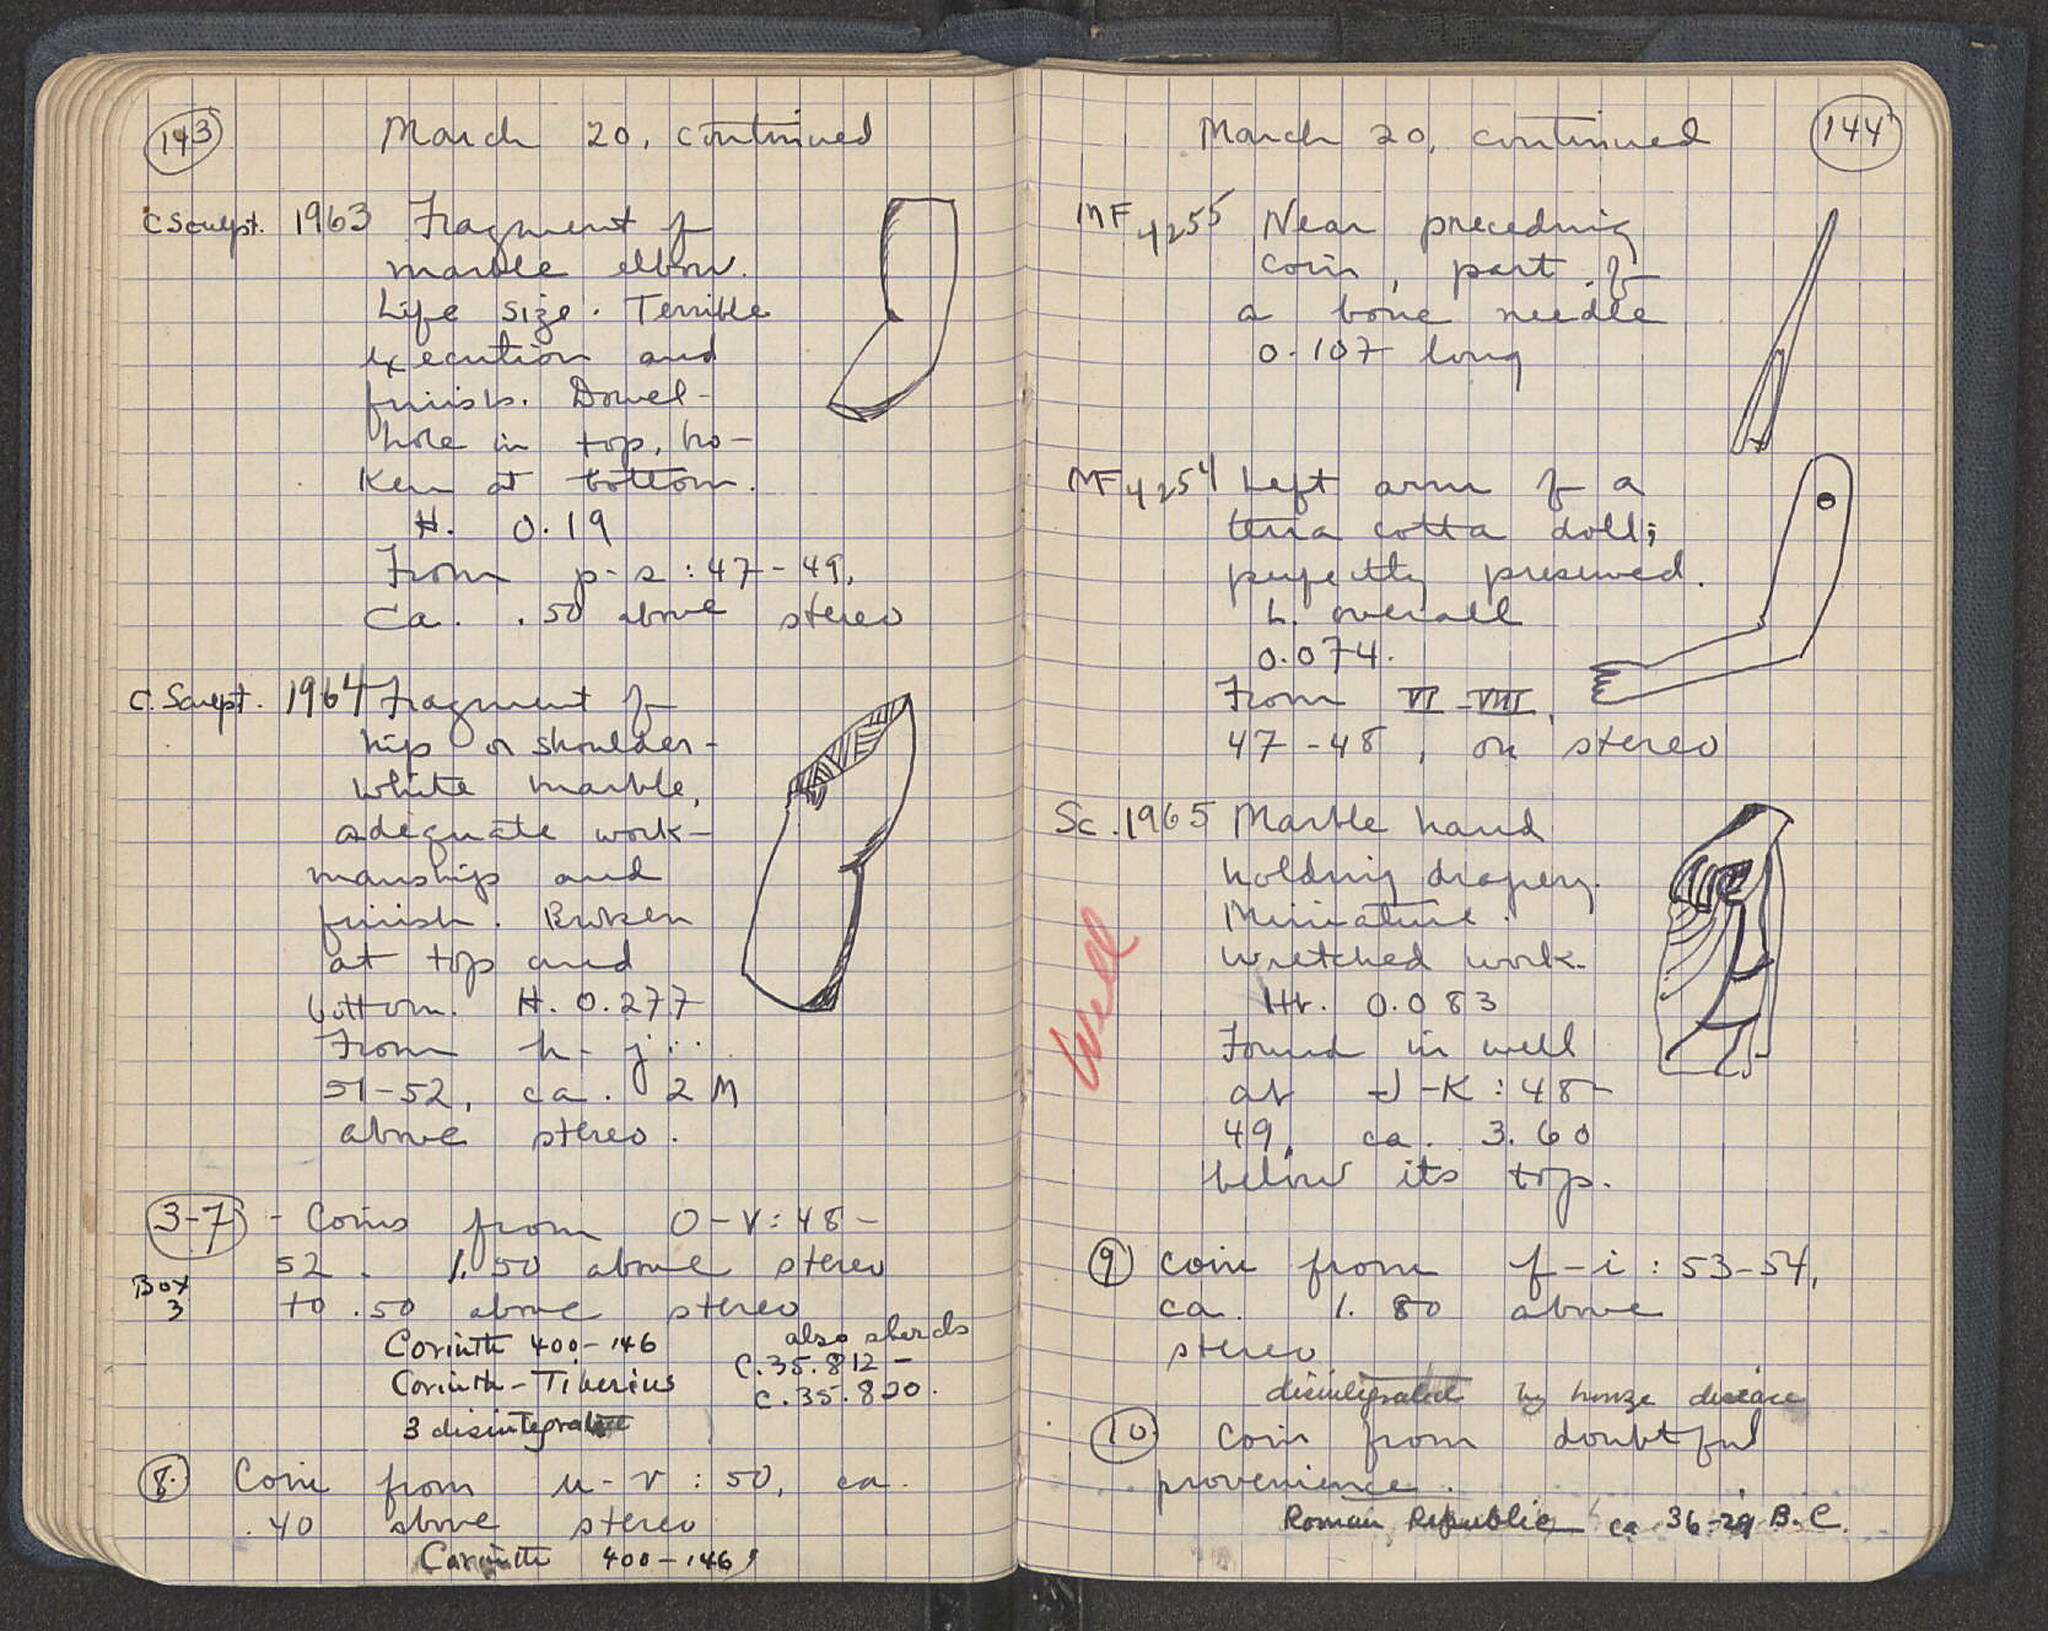 143
March 20, continued
C Sculpt. 1963 Fragment of
marble elbow.
Life size. Terrible
execution and
finish. Dowel-
hole in top, bro-
ken at bottom.
H. 0.19
From p-s: 47-49,
Ca. .50 above stereo
C. Sculpt. 1964 Fragment of
hip or shoulder-
white marble,
adequate work-
manship and
finish. Broken
at top and
bottom. H. 0.277
From h-j:
51-52, ca. 2 M
above stereo.
3-7 - Coins from O-V: 48-
52. 1.50 above stereo
Box
3
to .50 above stereo
Corinth 400-146
Corinth-Tiberius
3 disintegrated
also sherds
C.35.812-
C.35.820.
8. Coin from u-v: 50, ca.
.40 above stereo
Corinth 400-146
March 20, continued
144
MF 4255 Near preceding
coin, part of
a bone needle
0.107 long
MF 4254 Left arm of a
terra cotta doll;
perfectly preserved.
L. overall
0.074.
From VI-VIII,
47-48, on stereo
Sc. 1965 Marble hand
holding drapery.
Miniature.
Wretched work.
Ht. 0.083
Found in well
at J-K: 48-
49, ca. 3.60
below its top.
Well
9 Coin from f-i: 53-54,
ca. 1.80 above
stereo
disintegrated by bronze disease
10. Coin from doubtful
provenience.
Roman Republic ca 36-29 B.C.